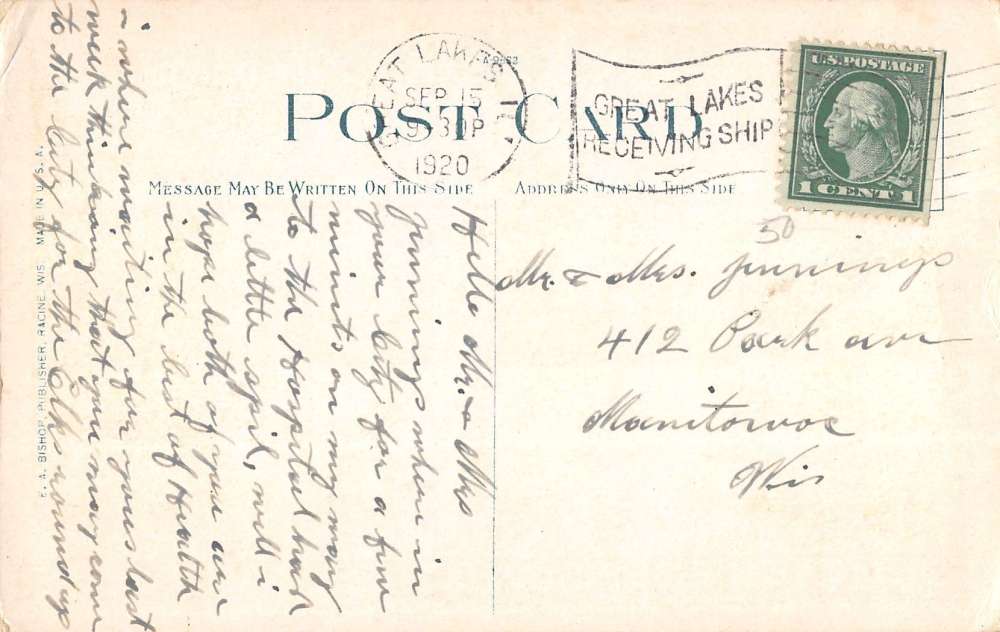 GREAT LAKES, ILL.
SEP 15
9-30P
1920
GREAT LAKES
RECEIVING SHIP
U.S. POSTAGE
1 CENT 1
POST CARD
MESSAGE MAY BE WRITTEN ON THIS SIDE
ADDRESS ONLY ON THIS SIDE
50
Mr. & Mrs. Jennings
412 Park ave
Manitowoc
Wis
Hello Mr. & Mrs
Jennings when in
your city for a few
minits on my way
to the Hospital had
a little spil, well i
hope both of you are
in the best of Health
i where waiting for you last
week thinking that you may come
to the city for the Elks round up
E. A. BISHOP, PUBLISHER, RACINE, WIS. MADE IN U.S.A.